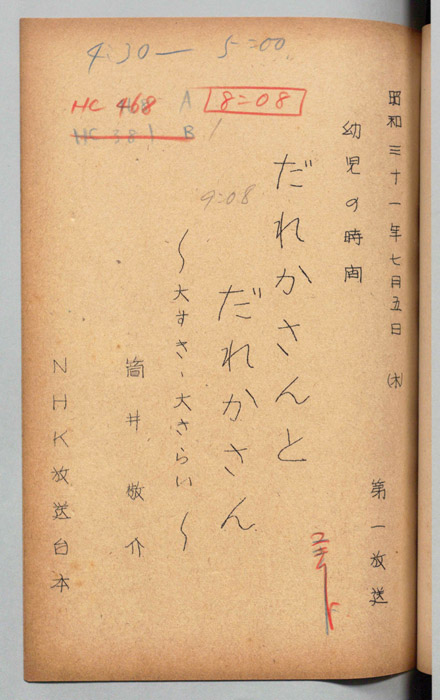 4:30 — 5:00
HC 468 A 8=08
HC 381 B
昭和三十一年七月五日 (木)
第一放送
幼児の時間
だれかさんと
だれかさん
9=08
〜大すき、大きらい〜
筒井敬介
NHK放送台本